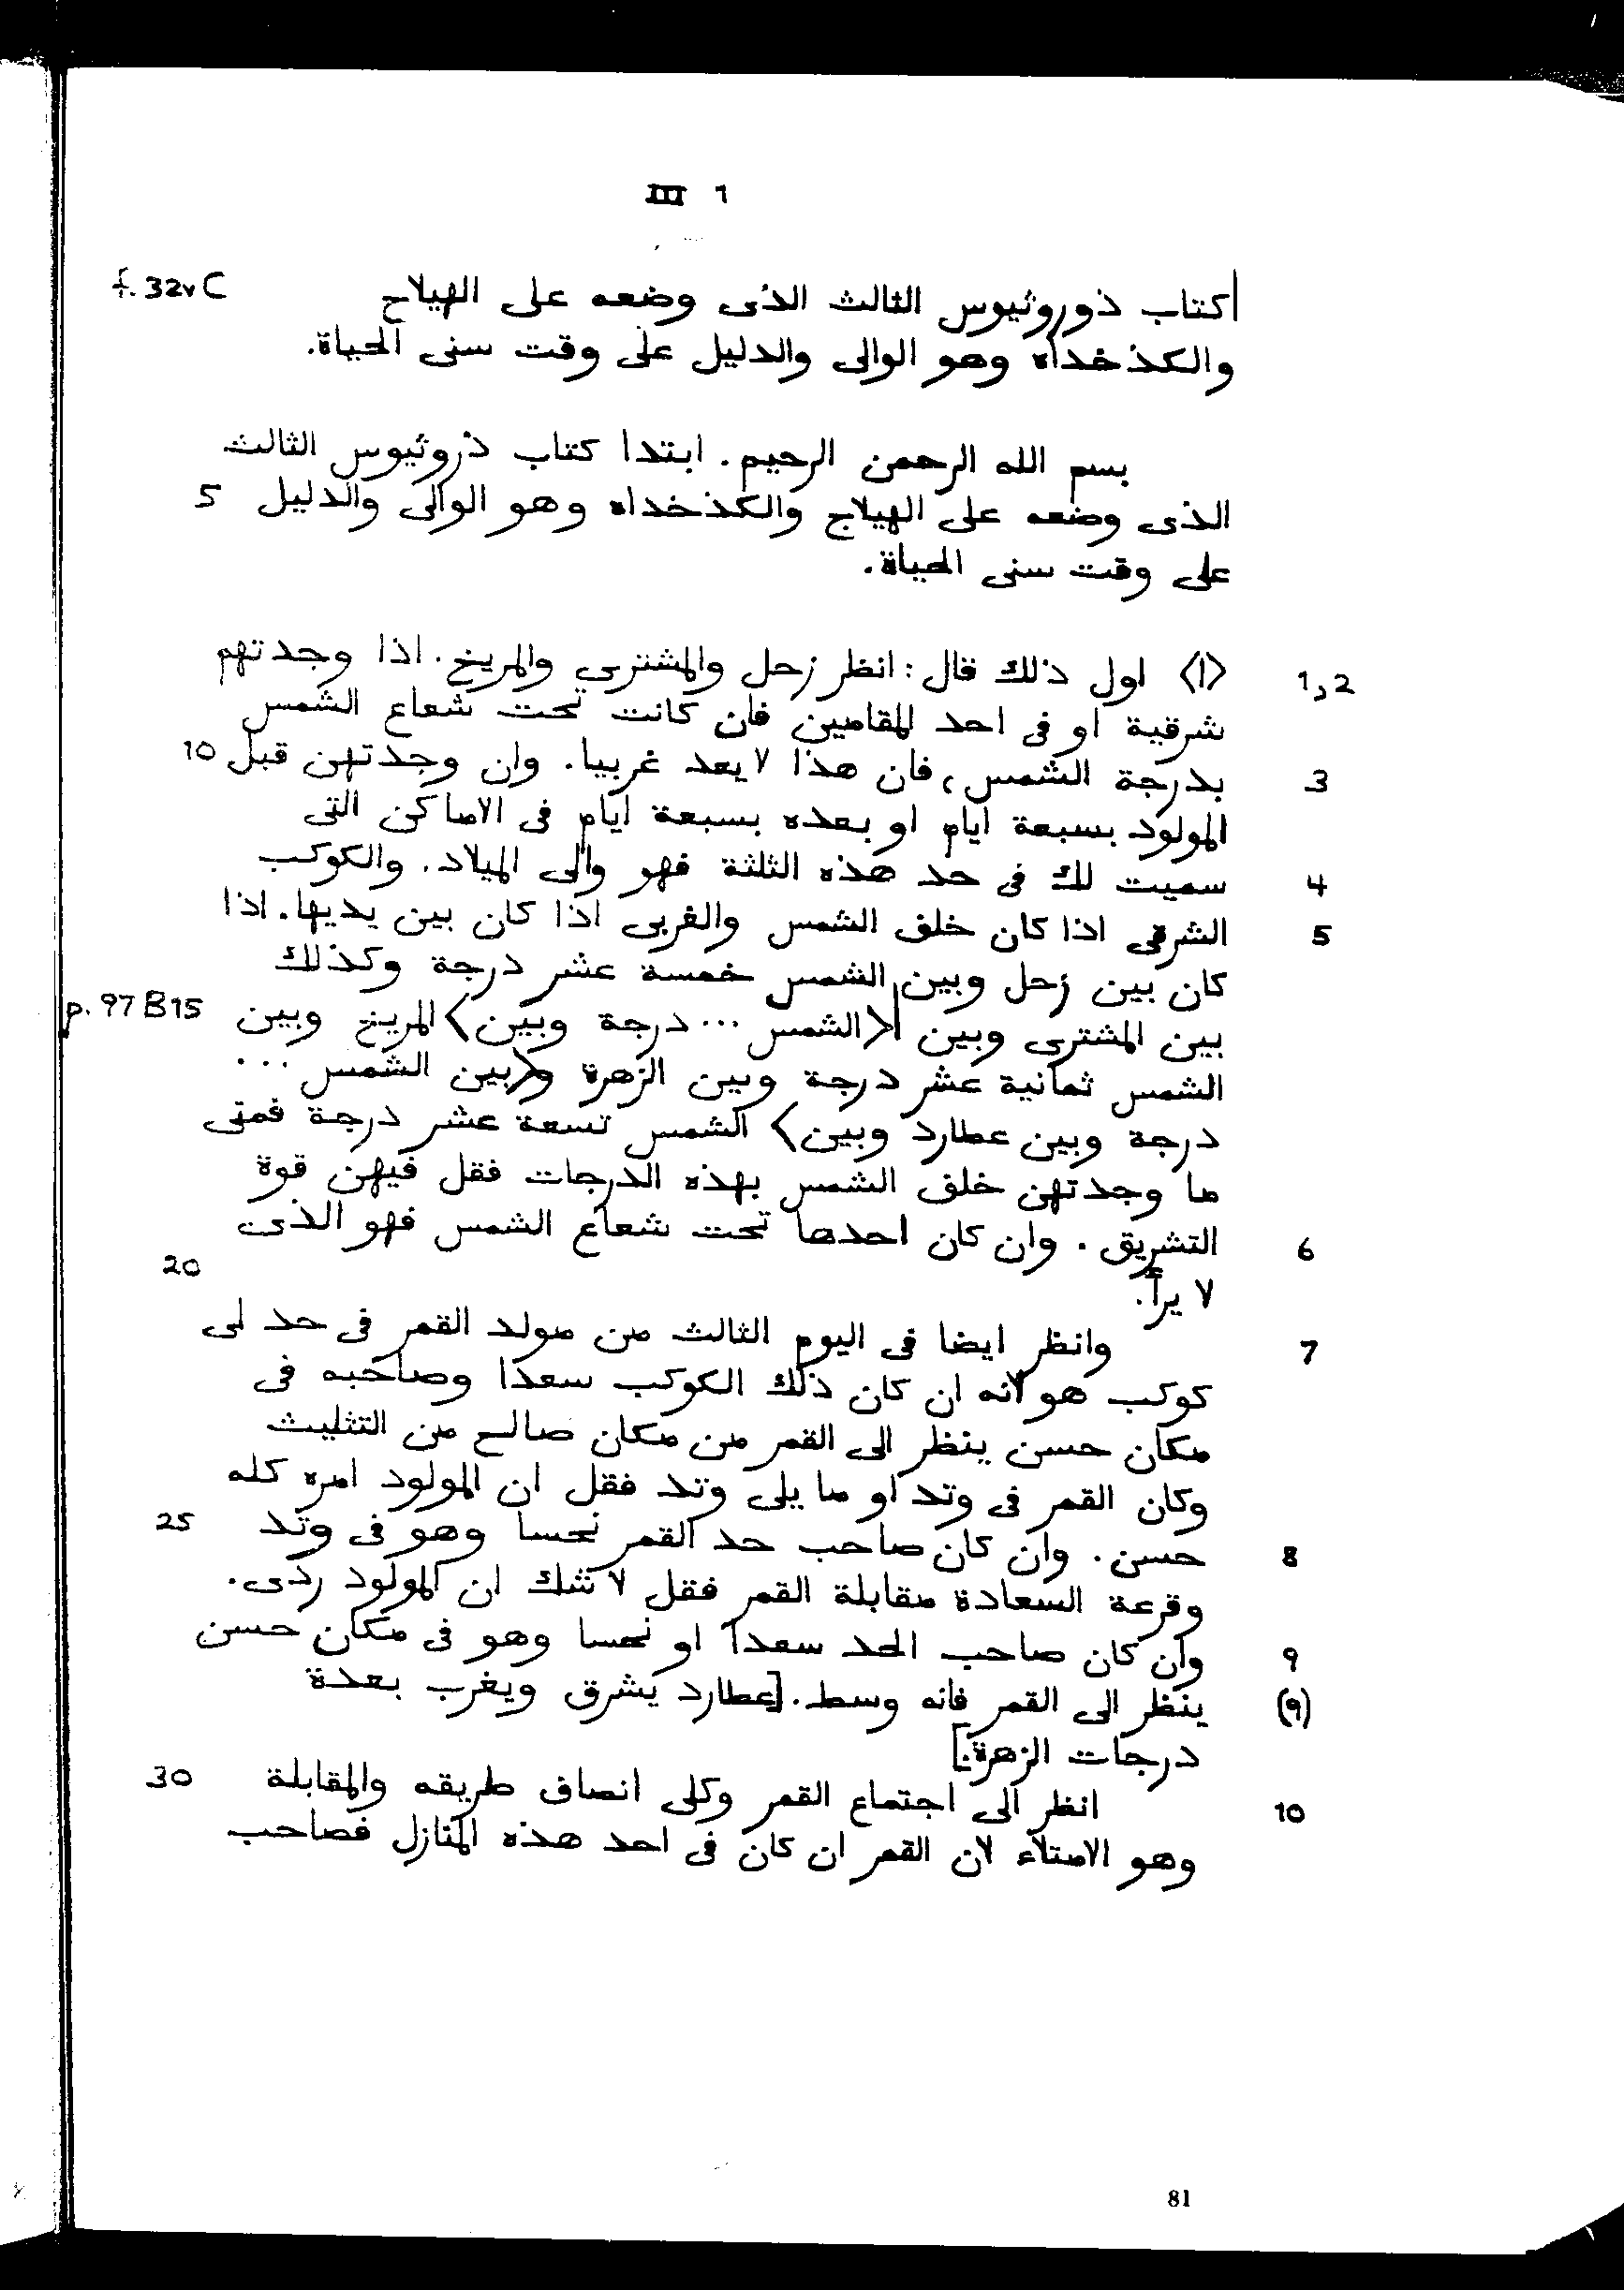 III 1
f. 32v C |كتاب ذوروثيوس الثالث الذى وضعه على الهيلاج
والكذخداه وهو الوالى والدليل على وقت سنى الحياة.
بسم الله الرحمن الرحيم. ابتدا كتاب ذروثيوس الثالث
الذى وضعه على الهيلاج والكذخداه وهو الوالى والدليل 5
على وقت سنى الحياة.
1,2 <ا> اول ذلك قال: انظر زحل والمشترى والمريخ. اذا وجدتهم
شرقية او فى احد المقامين فان كانت تحت شعاع الشمس
3 بدرجة الشمس، فان هذا لا يعد غربيا. وان وجدتهن قبل 10
المولود بسبعة ايام او بعده بسبعة ايام فى الاماكن التى
4 سميت لك فى حد هذه الثلثة فهو والى الميلاد. والكوكب
5 الشرقى اذا كان خلف الشمس والغربى اذا كان بين يديها. اذا
كان بين زحل وبين الشمس خمسة عشر درجة وكذلك
بين المشترى وبين |<الشمس ... درجة وبين> المريخ وبين p. 97 B 15
الشمس ثمانية عشر درجة وبين الزهرة و<بين الشمس ...
درجة وبين عطارد وبين> الشمس تسعة عشر درجة فمتى
ما وجدتهن خلف الشمس بهذه الدرجات فقل فيهن قوة
6 التشريق. وان كان احدها تحت شعاع الشمس فهو الذى
لا يرأ. 20
7 وانظر ايضا فى اليوم الثالث من مولد القمر فى حد اى
كوكب هو لانه ان كان ذلك الكوكب سعدا وصاحبه فى
مكان حسن ينظر الى القمر من مكان صالح من التثليث
وكان القمر فى وتد او ما يلى وتد فقل ان المولود امره كله
8 حسن. وان كان صاحب حد القمر نحسا وهو فى وتد 25
وقرعة السعادة مقابلة القمر فقل لا شك ان المولود ردى.
9 وان كان صاحب الحد سعدا او نحسا وهو فى مكان حسن
(9) ينظر الى القمر فانه وسط. [عطارد يشرق ويغرب بعدة
درجات الزهرة.]
10 انظر الى اجتماع القمر وكلى انصاف طريقه والمقابلة 30
وهو الامتلاء لان القمر ان كان فى احد هذه المنازل فصاحب
81